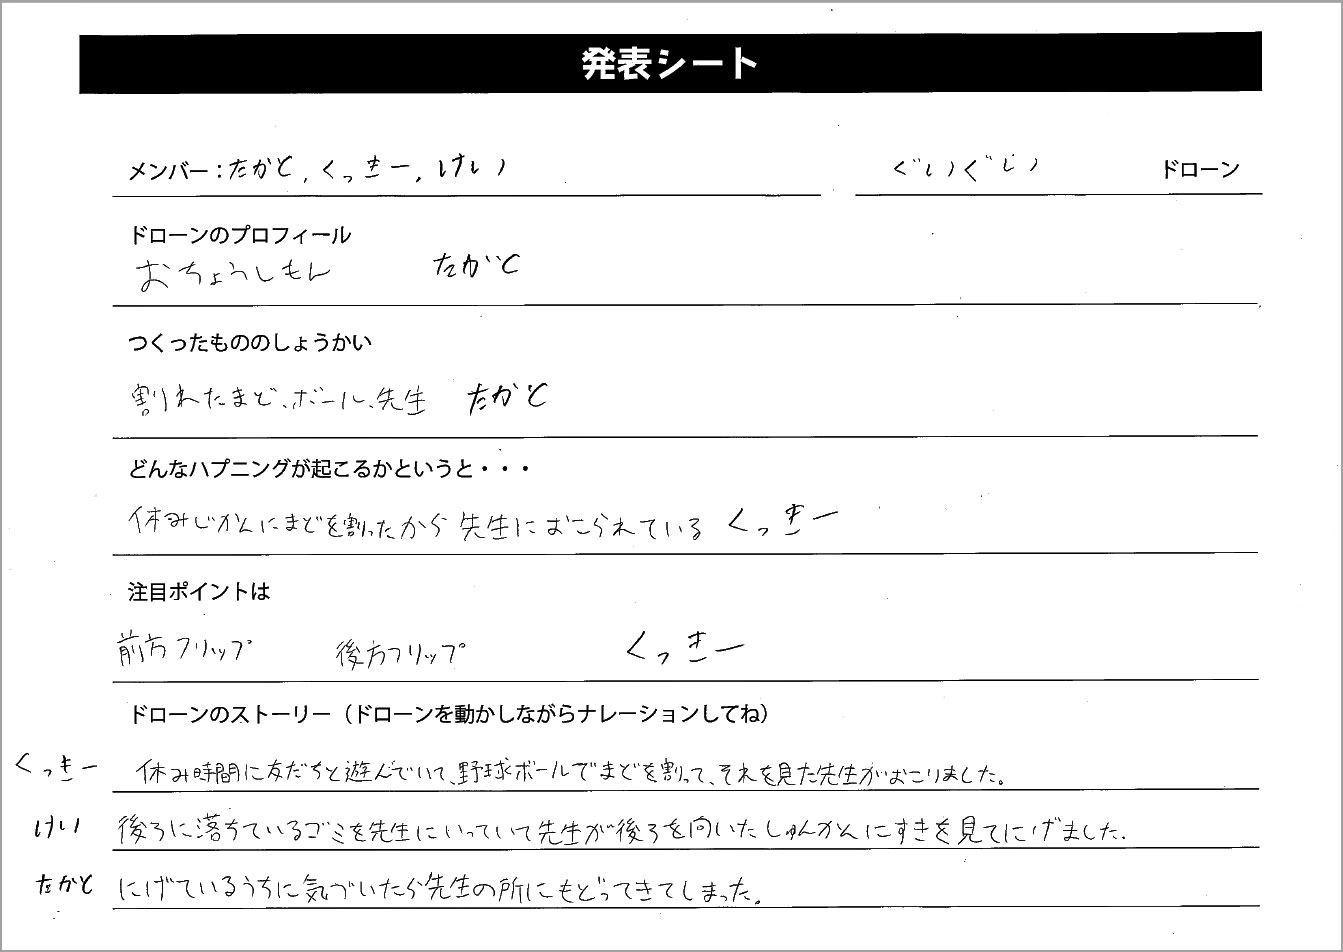 発表シート
メンバー：たかと，くっきー，けい　ぐいぐい　ドローン
ドローンのプロフィール
おちょうしもん　たかと
つくったもののしょうかい
割れたまど、ボール、先生　たかと
どんなハプニングが起こるかというと・・・
休みじかんにまどを割ったから先生におこられている　くっきー
注目ポイントは
前方フリップ　後方フリップ　くっきー
ドローンのストーリー（ドローンを動かしながらナレーションしてね）
くっきー　休み時間に友だちと遊んでいて、野球ボールでまどを割って、それを見た先生がおこりました。
けい　後ろに落ちているゴミを先生にいっていて先生が後ろを向いたしゅんかんにすきを見てにげました。
たかと　にげているうちに気づいたら先生の所にもどってきてしまった。